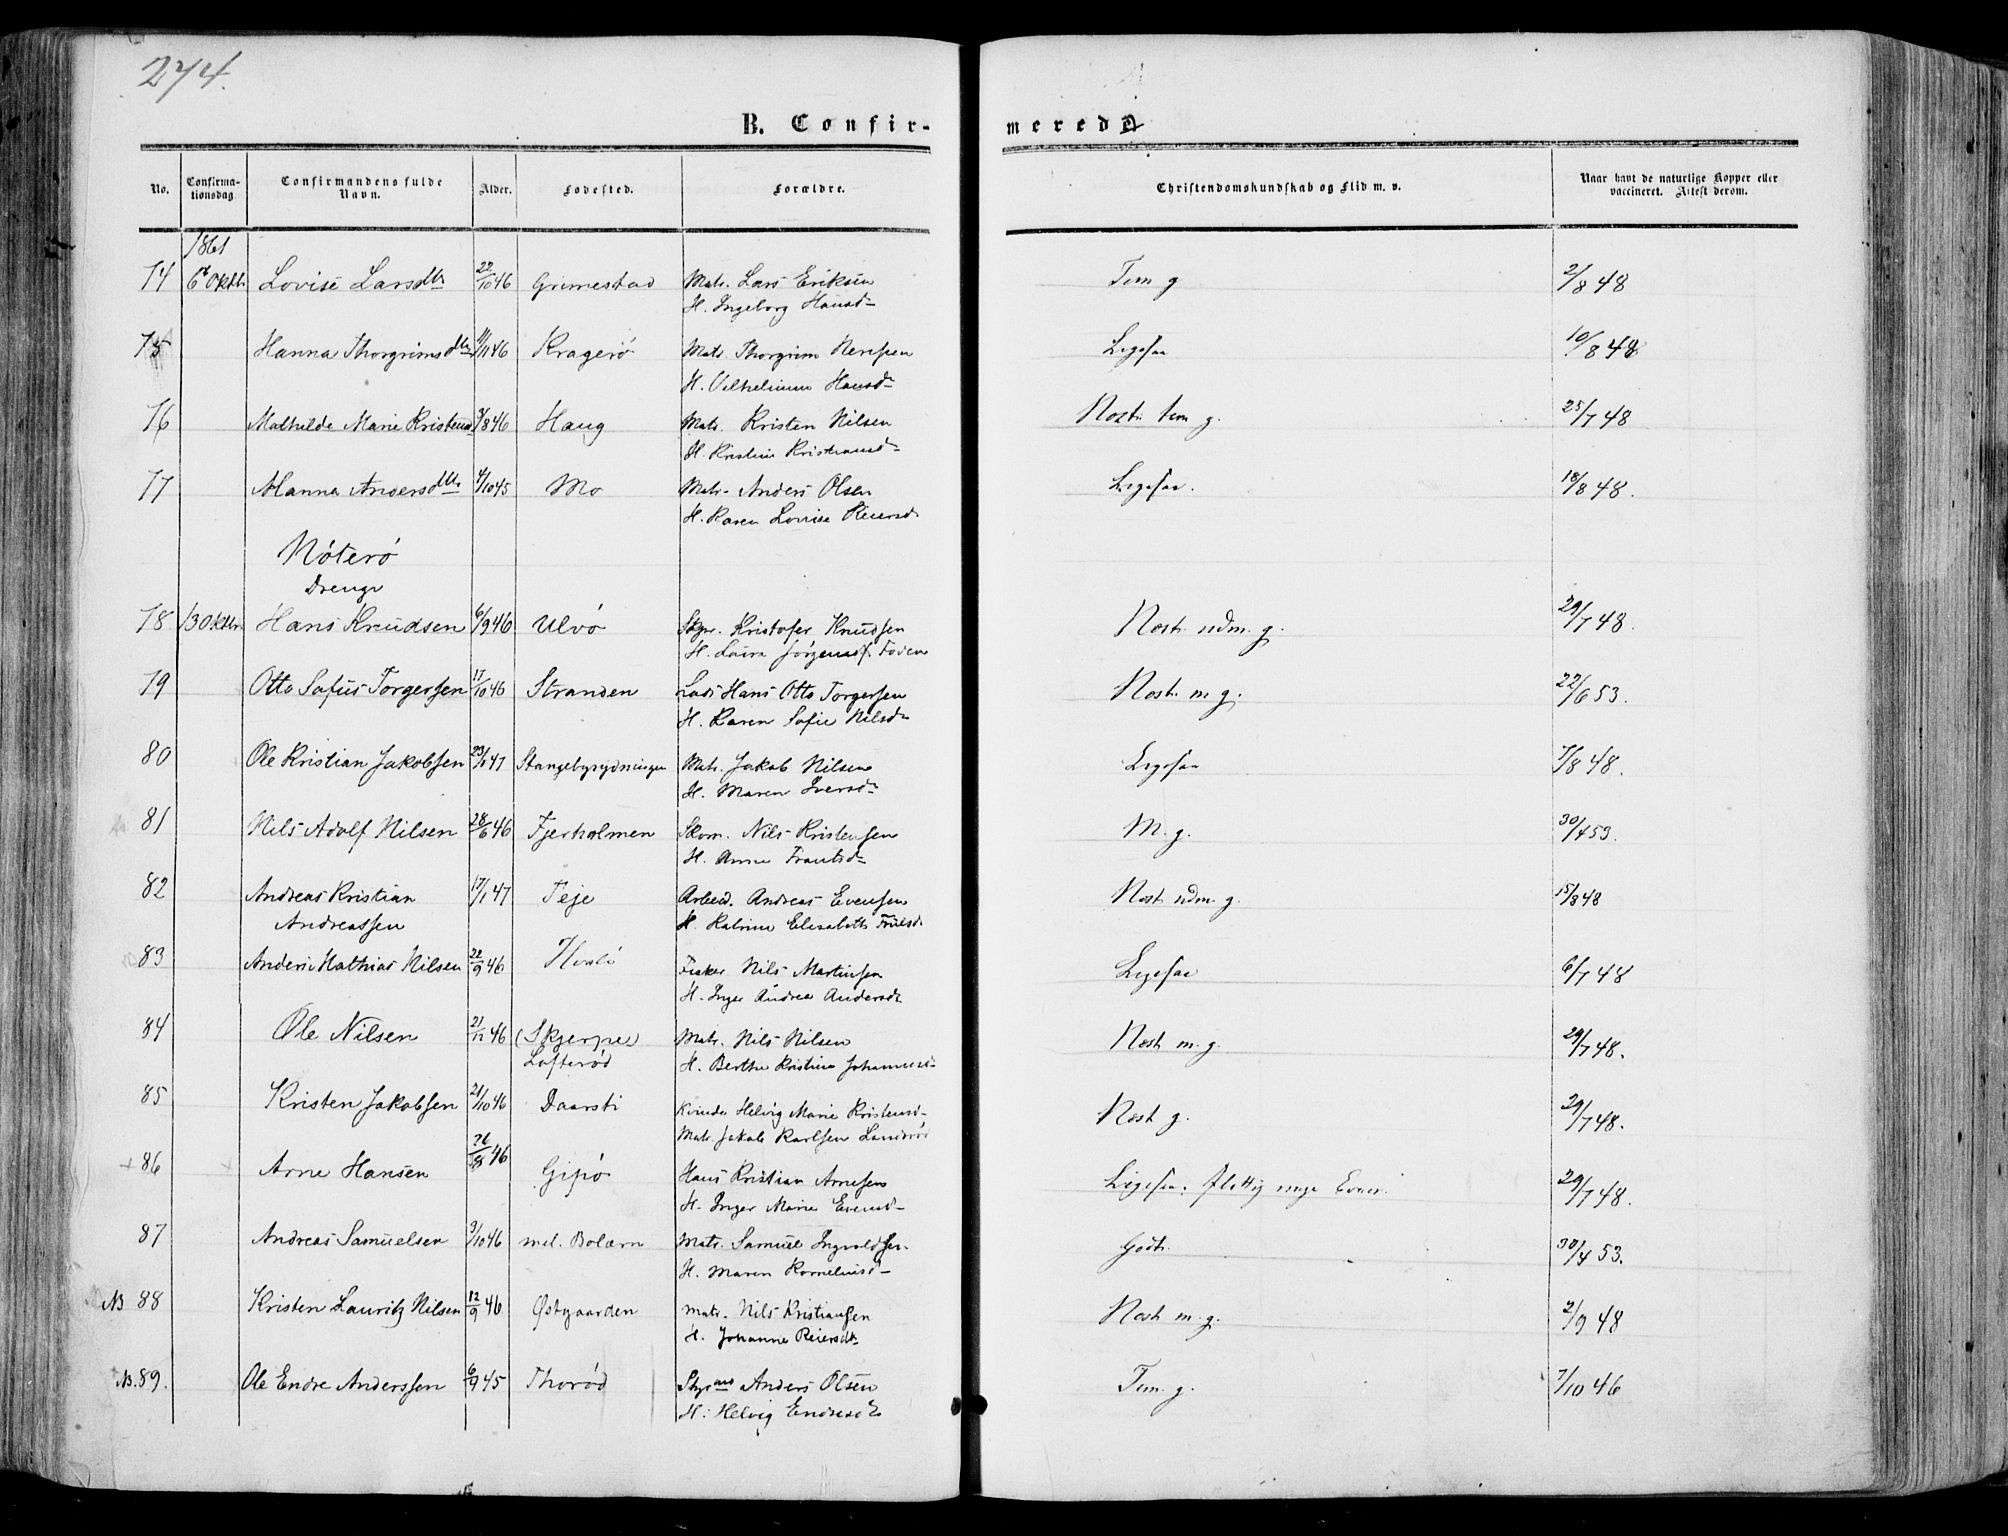 274.
B. Confir-
merede
No. Confirma-tionsdag Confirmandens fulde Navn. Alder. Fødested. Forældre. Christendomskundskab og Flid m. v. Naar havt de naturlige Kopper eller vaccineret. Attest derom.
1861
74 6t Oktb. Lovise Larsdtr 22/10 46 Grimestad Matr. Lars Eriksen Tem g 2/8 48
H. Ingeborg Hansd
75 Hanna Thorgrimsdtr 11/11 46 Kragerö Matr. Thorgrim Ligesaa 10/8 48
H. Vilhelmine Hansd
76 Mathilde Marie 3/8 46 Haug Matr. Kristen Nilsen Næst. tem g. 25/7 48
H. Kristine
77 Hanna Andersdtr 4/10 45 Mo Matr. Anders Olsen Ligesaa. 18/8 48.
H. Karen Lovise Reiersd.
Nöterö
Drenge
78 13 Oktbr. Hans Knudsen 6/9 46 Ulvö Kristofer Knudsen Næst. udm. g. 29/7 48.
H. Laura
79 Otto Sofus Torgersen 17/10 46 Stranden Lods Hans Otto Torgersen Næst. m g. 22/6 53.
H. Karen Sofie Nilsd
80 Ole Kristian Jakobsen 23/1 47 Stangebyrydningen Matr. Jakob Nilsen Ligesaa 7/8 48.
H. Maren Iversd
81 Nils Adolf Nilsen 28/6 46 Fjerholmen Skom. Nils Kristensen M. g. 30/4 53.
H. Anne Frantsd
82 Andreas Kristian 17/1 47 Teje Arbeid. Andreas Evensen Næst. udm. g. 15/8 48
Andreassen H. Katrine Elisabeth
83 Anders Mathias Nilsen 22/9 46 Nils Martinsen Ligesaa 6/7 48
H. Inger Andrea Andersdt
84 Ole Nilsen 21/12 46 (Skjerpe) Matr. Nils Nilsen Næst. m. g. 29/7 48.
Lofteröd H. Berthe Kristine
85 Kristen Jakobsen 21/10 46 Daarsti Kvinde Helvig Marie Kristensd Næst g. 29/7 48.
Matr. Jakob Karlsen
+ 86 Arne Hansen 46 Gipö Hans Kristian Arnesen Ligesaa. flittig 29/7 48.
H. Inger Marie Evensd
87 Andreas Samuelsen 3/10 46 mel. Bolærn Matr. Samuel Ingvoldsen Godt. 30/4 53.
H. Maren Korneliusd
NB 88 Kristen Lauritz Nilsen 12/9 46 Østgaarden Matr. Nils Kristiansen Næst m. g. 2/9 48
H. Johanne Reiersdt.
NB. 89. Ole Endre Anderssen 6/9 45 Thoröd Anders Olsen Tem. g. 7/10 46
H: Helvig